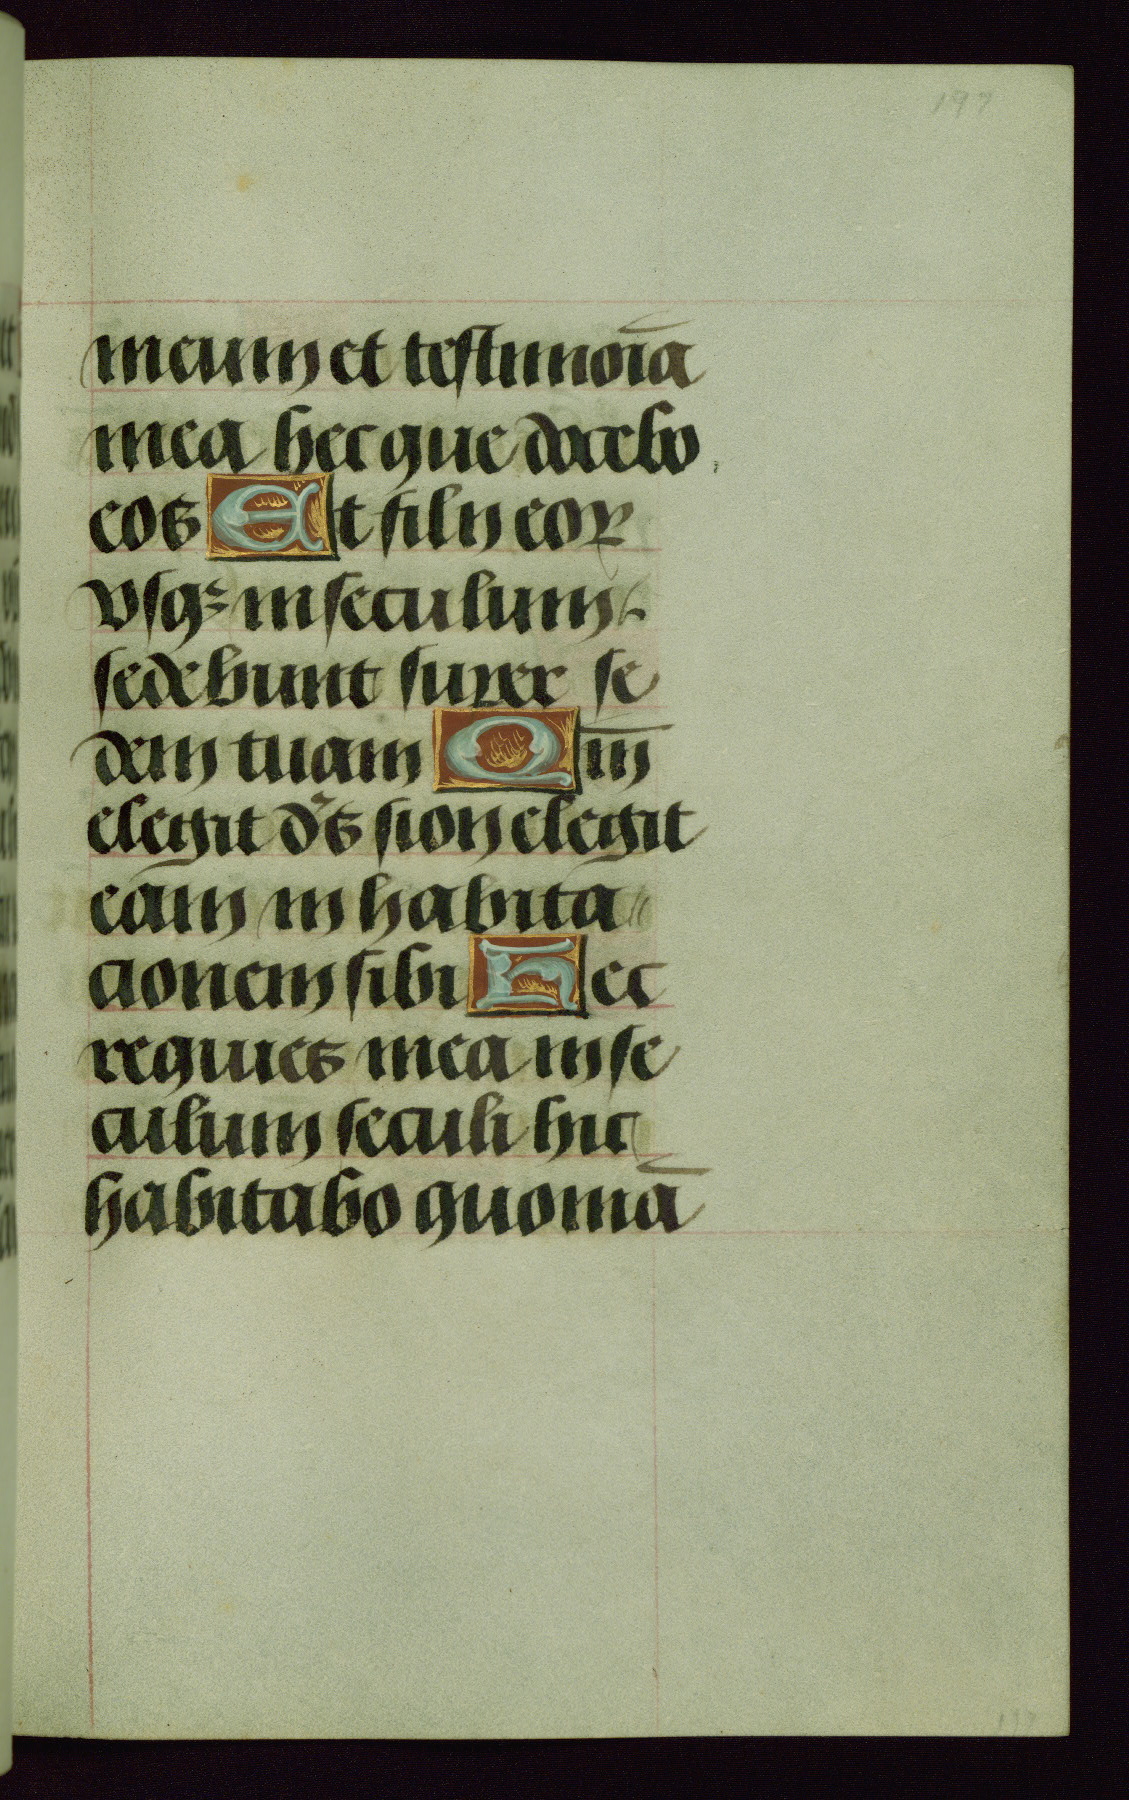 197
meum et testimoīa
mea hec que docebo
eos Et filij eoꝝ
vsqꝫ in seculum
sedebunt super se
dem tuam Qm̄
elegit dn̄s sion elegit
eam in habita
cionem sibi Hec
requies mea in se
culum seculi hic
habitabo quoniā